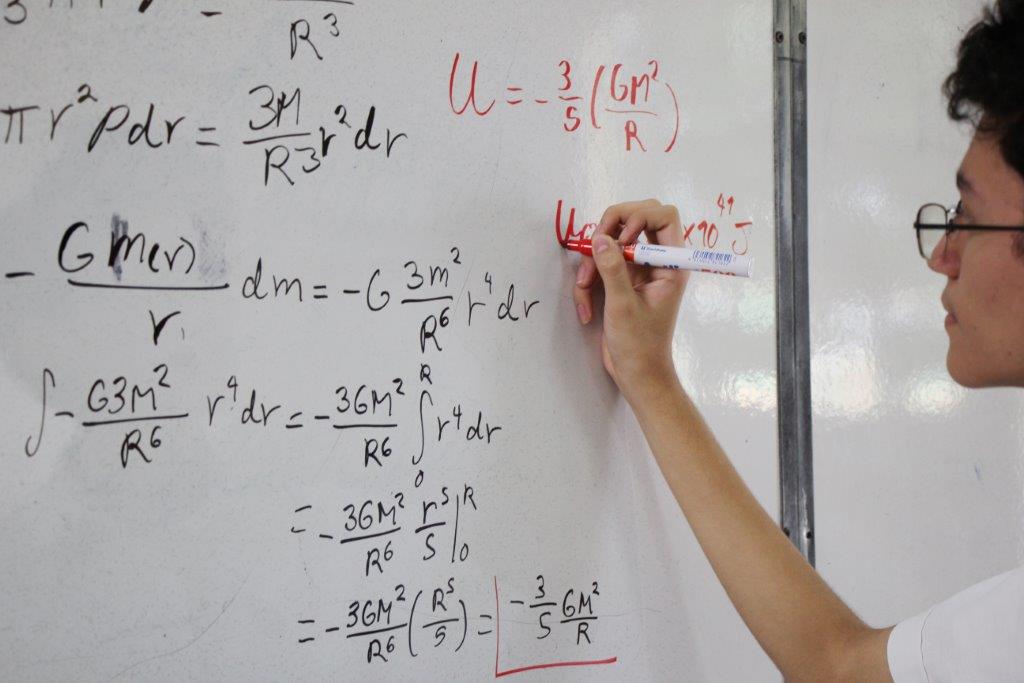 R³
πr²ρdr = 3M/R³ r²dr
U = -3/5 (GM²/R)
U ×10⁴¹ J
- Gm(r)/r dm = -G 3m²/R⁶ r⁴dr
∫ - G3M²/R⁶ r⁴dr = - 3GM²/R⁶ ∫₀ᴿ r⁴dr
= - 3GM²/R⁶ r⁵/5 |₀ᴿ
= - 3GM²/R⁶ (R⁵/5) = - 3/5 GM²/R